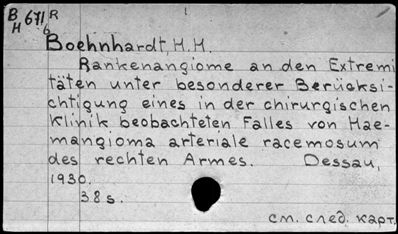 B 671 R
H 6
Boehnhardt, H. H.
Rankenangiome an den Extremi
täten unter besonderer Berücksi-
chtigung eines in der chirurgischen
Klinik beobachteten Falles von Hae-
mangioma arteriale racemosum
des rechten Armes. Dessau,
1930.
38 s.
см. след. карт.